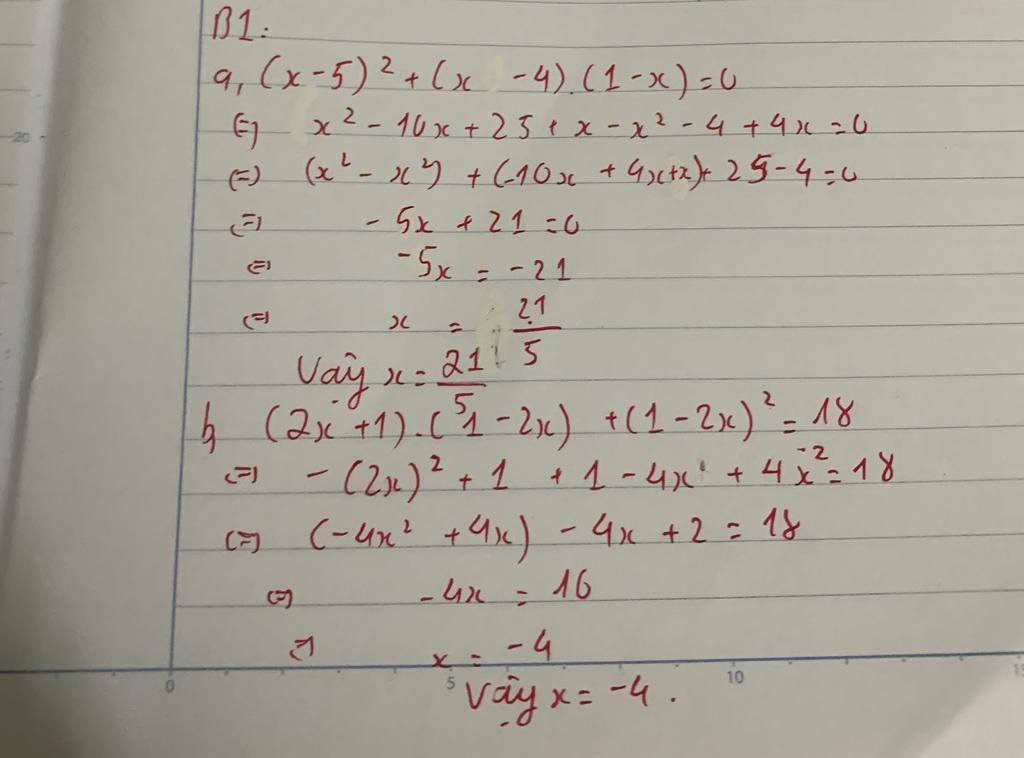 B1:
a, (x-5)² + (x -4).(1-x)=0
(=) x² - 10x + 25 + x - x² - 4 + 4x = 0
(=) (x² - x²) + (-10x + 4x+x)+ 25-4=0
(=) - 5x + 21 = 0
(=) -5x = -21
(=) x = 21/5
Vậy x = 21/5
b, (2x+1).(1-2x) +(1-2x)² = 18
(=) -(2x)² + 1 + 1 - 4x + 4x² = 18
(=) (-4x² + 4x) - 4x + 2 = 18
(=) -4x = 16
(=) x = -4
Vậy x = -4.
20
0 5 10 15